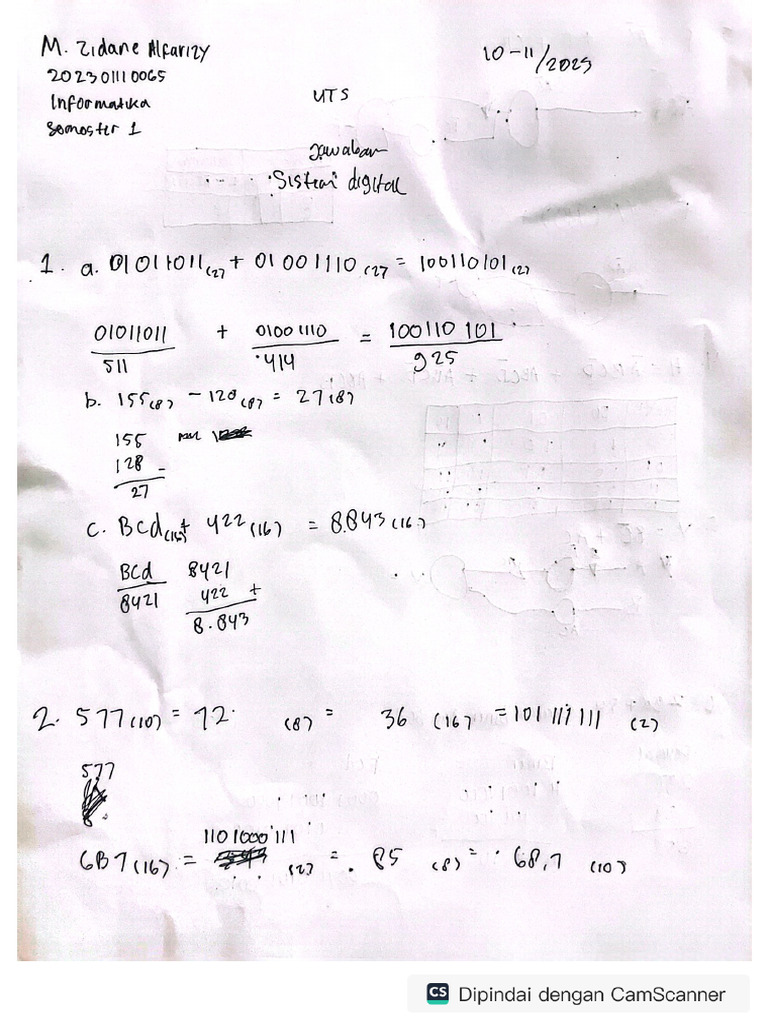 M. Zidane Alfarizy
10-11/2023
202301110065
Informatika
Semester 1
UTS
Jawaban
Sistem digital
1. a. 01011011(2) + 01001110(2) = 100110101(2)
01011011 + 01001110 = 100110 101
511 414 925
b. 155(8) - 128(8) = 27(8)
155
128 -
27
c. Bcd(16) + 422(16) = 8.843(16)
BCd 8421
8421 422 +
8.843
2. 577(10) = 72 (8) = 36 (16) = 101 111 111 (2)
577
1101000 111
6B7(16) = (2) = 85 (8) = 68,7 (10)
CS Dipindai dengan CamScanner